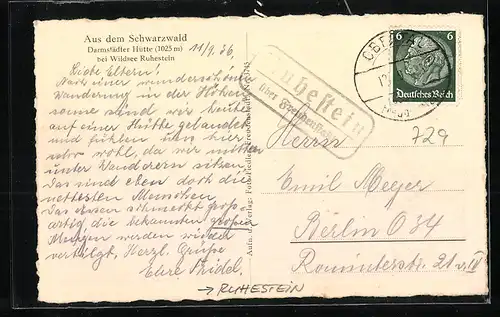 Aus dem Schwarzwald
Darmstädter Hütte (1025 m)
bei Wildsee Ruhestein
11/9. 36.
Liebe Eltern!
Nach einer wunderschönen
Wanderung in der Höhen-
sonne sind wir heute
auf einer Hütte gelandet
und fühlen uns hier
sehr wohl, da wir mitten
unter Wanderern sitzen.
Das sind eben doch die
nettesten Menschen.
Das Essen schmeckt groß-
artig, die bekannten großen
Mengen werden wieder
vertilgt, Herzl. Grüße
Eure
Ruhestein
über Freudenstadt
6 6
Deutsches Reich
729
Herrn
Emil Meyer
Berlin O34
Romintenerstr. 21
→ RUHESTEIN